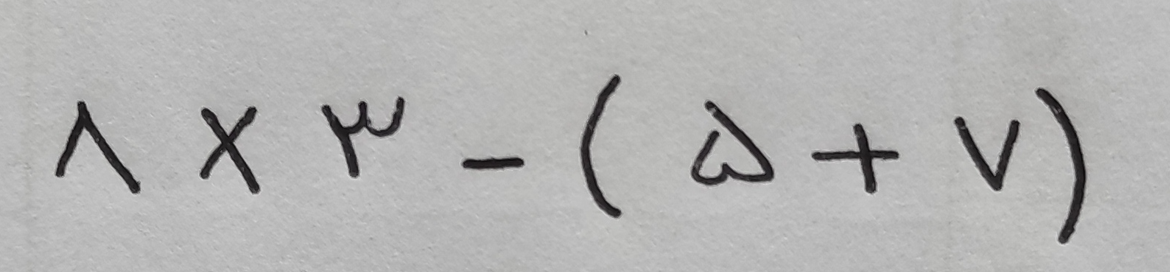 ۸ × ۳ - ( ۵ + ۷ )